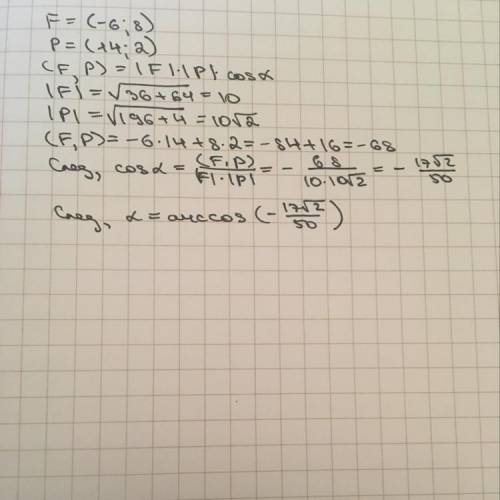 F = (-6; 8)
P = (14; 2)
(F, P) = |F|·|P|·cosα
|F| = √36+64 = 10
|P| = √196+4 = 10√2
(F, P) = -6·14+8·2 = -84+16 = -68
След, cosα = (F, P)/|F|·|P| = - 68/10·10√2 = - 17√2/50
След, α = arccos (- 17√2/50)